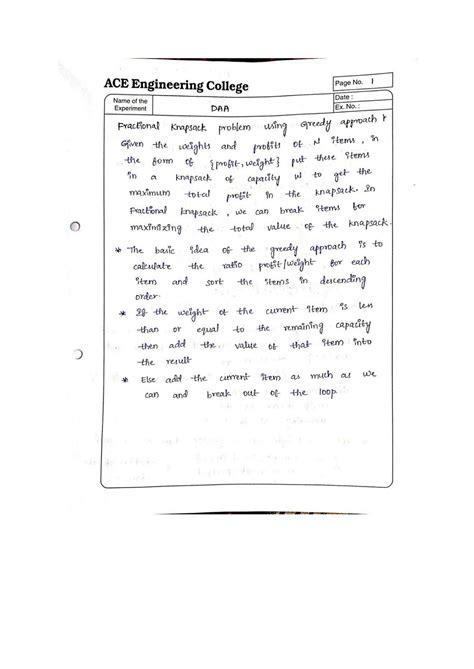 ACE Engineering College
Page No. 1
Name of the
Experiment
DAA
Date :
Ex. No. :
Fractional Knapsack problem using Greedy approach
Given the weights and profits of N items, in
the form of {profit, weight} put these items
in a knapsack of capacity W to get the
maximum total profit in the knapsack. In
Fractional Knapsack, we can break items for
maximizing the total value of the knapsack.
* The basic idea of the greedy approach is to
calculate the ratio profit/weight for each
item and sort the items in descending
order.
* If the weight of the current item is less
than or equal to the remaining capacity
then add the value of that item into
the result
* Else add the current item as much as we
can and break out of the loop